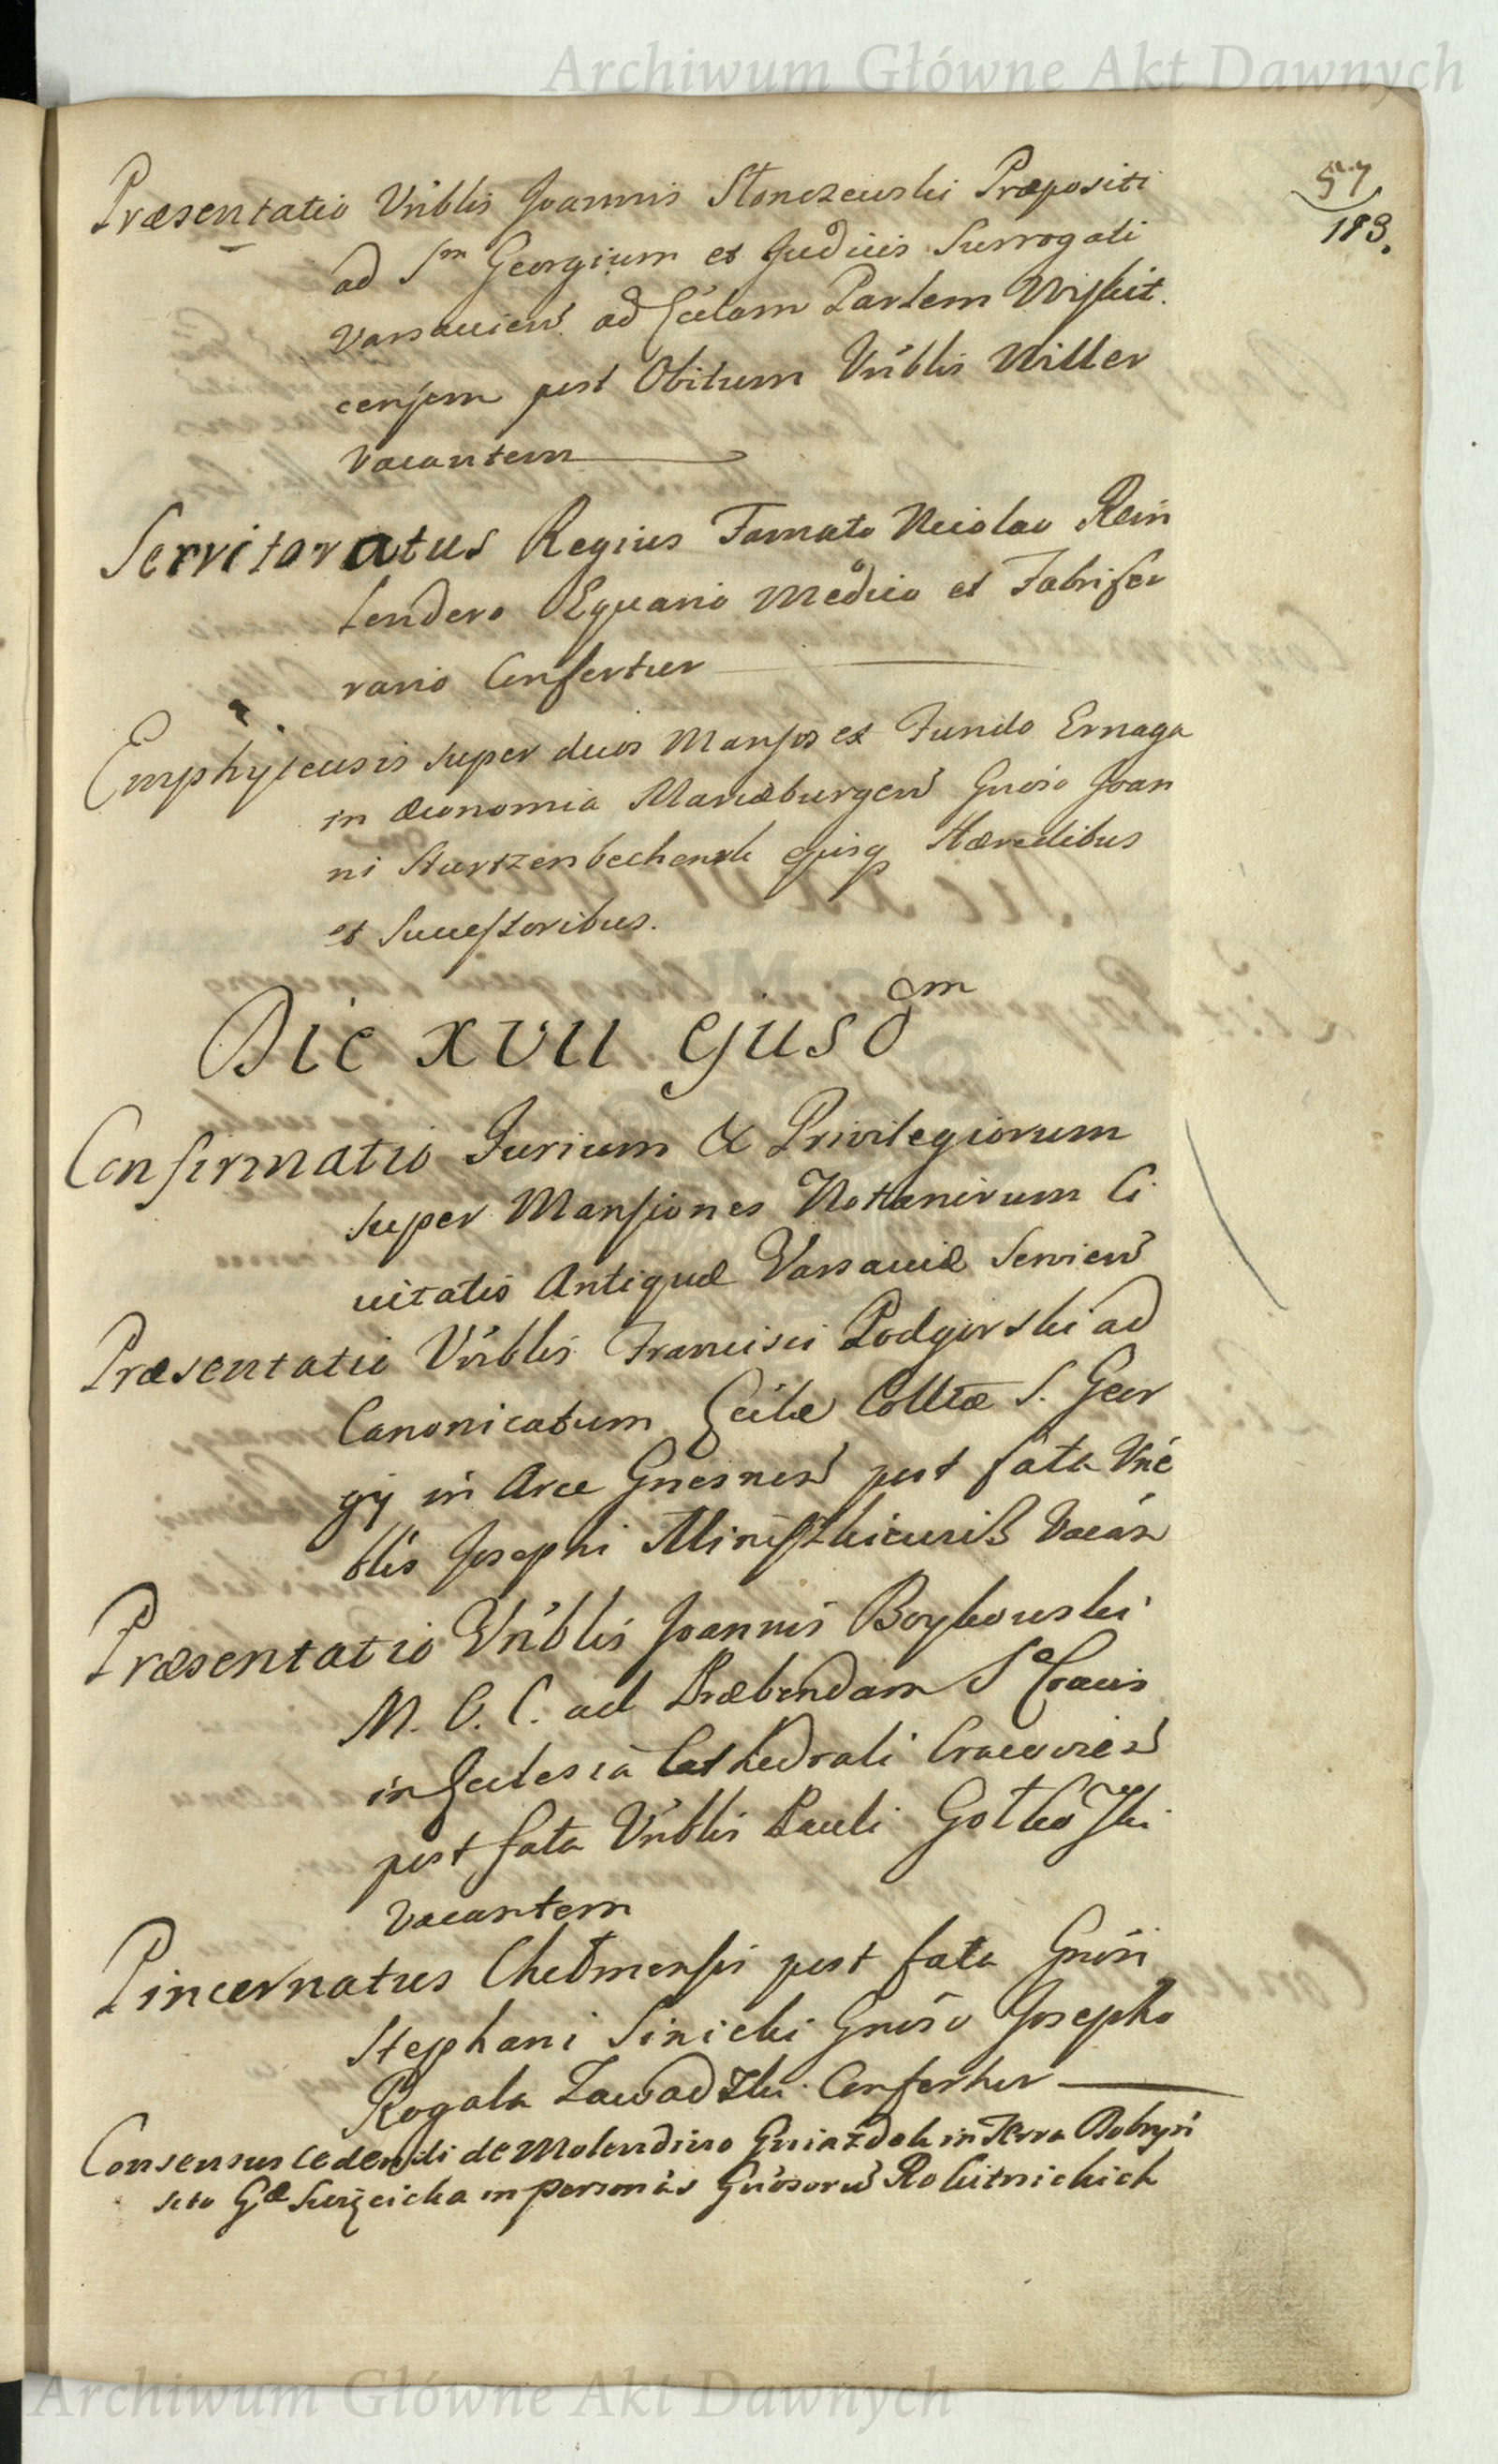 Archiwum Główne Akt Dawnych
57
183.
Præsentatio Vnìblis Joannis Stonczewski Præpositi
ad Sm Georgium et Judicis Surrogati
Varsavien ad Ecclam Parlem Wyskit
censem post Obitum Vnìblis Willer
vacantem
Servitoratus Regius Famato Nicolao Rein
lendero Equario Medico et Fabrifer
rario Confertur
Emphyteusis super duos Mansos ex Fundo Ernaga
in Œconomia Mariæburgen Gnoso Joan
ni Sturtzenbecherk ejusq Hæredibus
et Successoribus.
Die XVII ejusdm
Confirmatio Jurium & Privilegiorum
super Mansiones Nottarirum Ci
vitatis Antiquæ Varsaviæ Servien
Præsentatio Vnìblis Francisci Podgorski ad
Canonicatum Ecclæ Colltæ S. Geor
gij in Arce Gnesnen post fata Vne
blis Josephi Vacan
Præsentatio Vnìblis Joannis Boykowski
M. C. C. ad Præbendam S Crucis
in Ecclesia Cathedrali Cracovien
post fata Vnìblis Pauli Gołkowski
vacantem
Pincernatus Chełmensis post fata Gnosi
Stephani Sinicki Gnoso Josepho
Rogala Zawadzki Confertur
Consensus cedendi de Molendino Gniazdek in Terra Dobryn
sito Gæ in personas Gnosorū Rokitnickich
Archiwum Główne Akt Dawnych